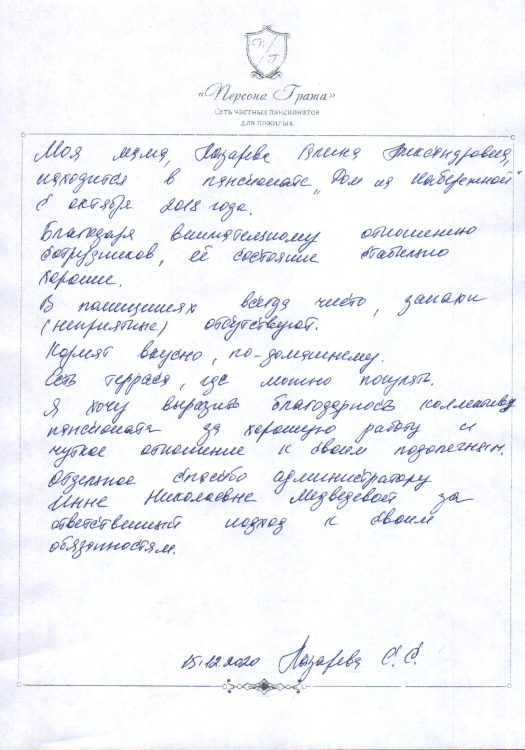 П Г
«Персона Грата»
Сеть частных пансионатов
для пожилых
Моя мама, Лазарева Елена Александровна,
находится в пансионате „Дом на Набережной"
с октября 2018 года.
Благодаря внимательному отношению
сотрудников, её состояние стабильно
хорошее.
В помещениях всегда чисто, запахи
(неприятные) отсутствуют.
Кормят вкусно, по-домашнему.
Есть терраса, где можно погулять.
Я хочу выразить благодарность коллективу
пансионата за хорошую работу и
чуткое отношение к своим подопечным.
Отдельное спасибо администратору
Инне Николаевне Медведевой за
ответственный подход к своим
обязанностям.
15.12.2020 Лазарева С.С.